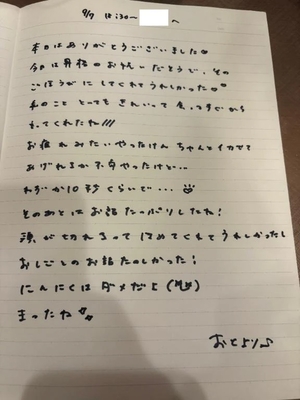 9/7 18:30〜 へ
本日はありがとうございました♡
今日は昇格のお祝いだそうで、その
ごほうびにしてくれてうれしかった♡
私のこと とってもきれいって 会ってすぐから
してくれたね///
お疲れみたいやったけん ちゃんとイカせて
あげれるか不安やったけど…
わずか10秒くらいで…
そのあとにお話たっぷりしたね!
頭が切れるって ほめてくれてうれしかったし
おしごとのお話たのしかった!
にんにくはダメだよ
まったね
おとより♪